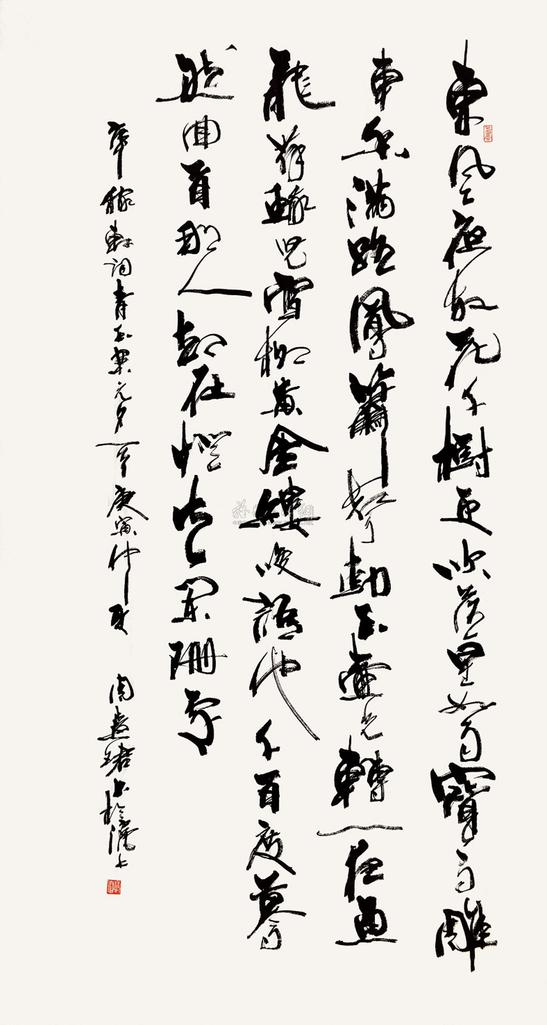 東風夜放花千樹更吹落星如雨寶馬雕
車香滿路鳳簫聲動玉壺光轉一夜魚
龍舞蛾兒雪柳黃金縷咲語他千百度驀
然回首那人却在燈火闌珊處
辛稼軒詞青玉案元夕一首庚寅仲 周慧珺書於滬上